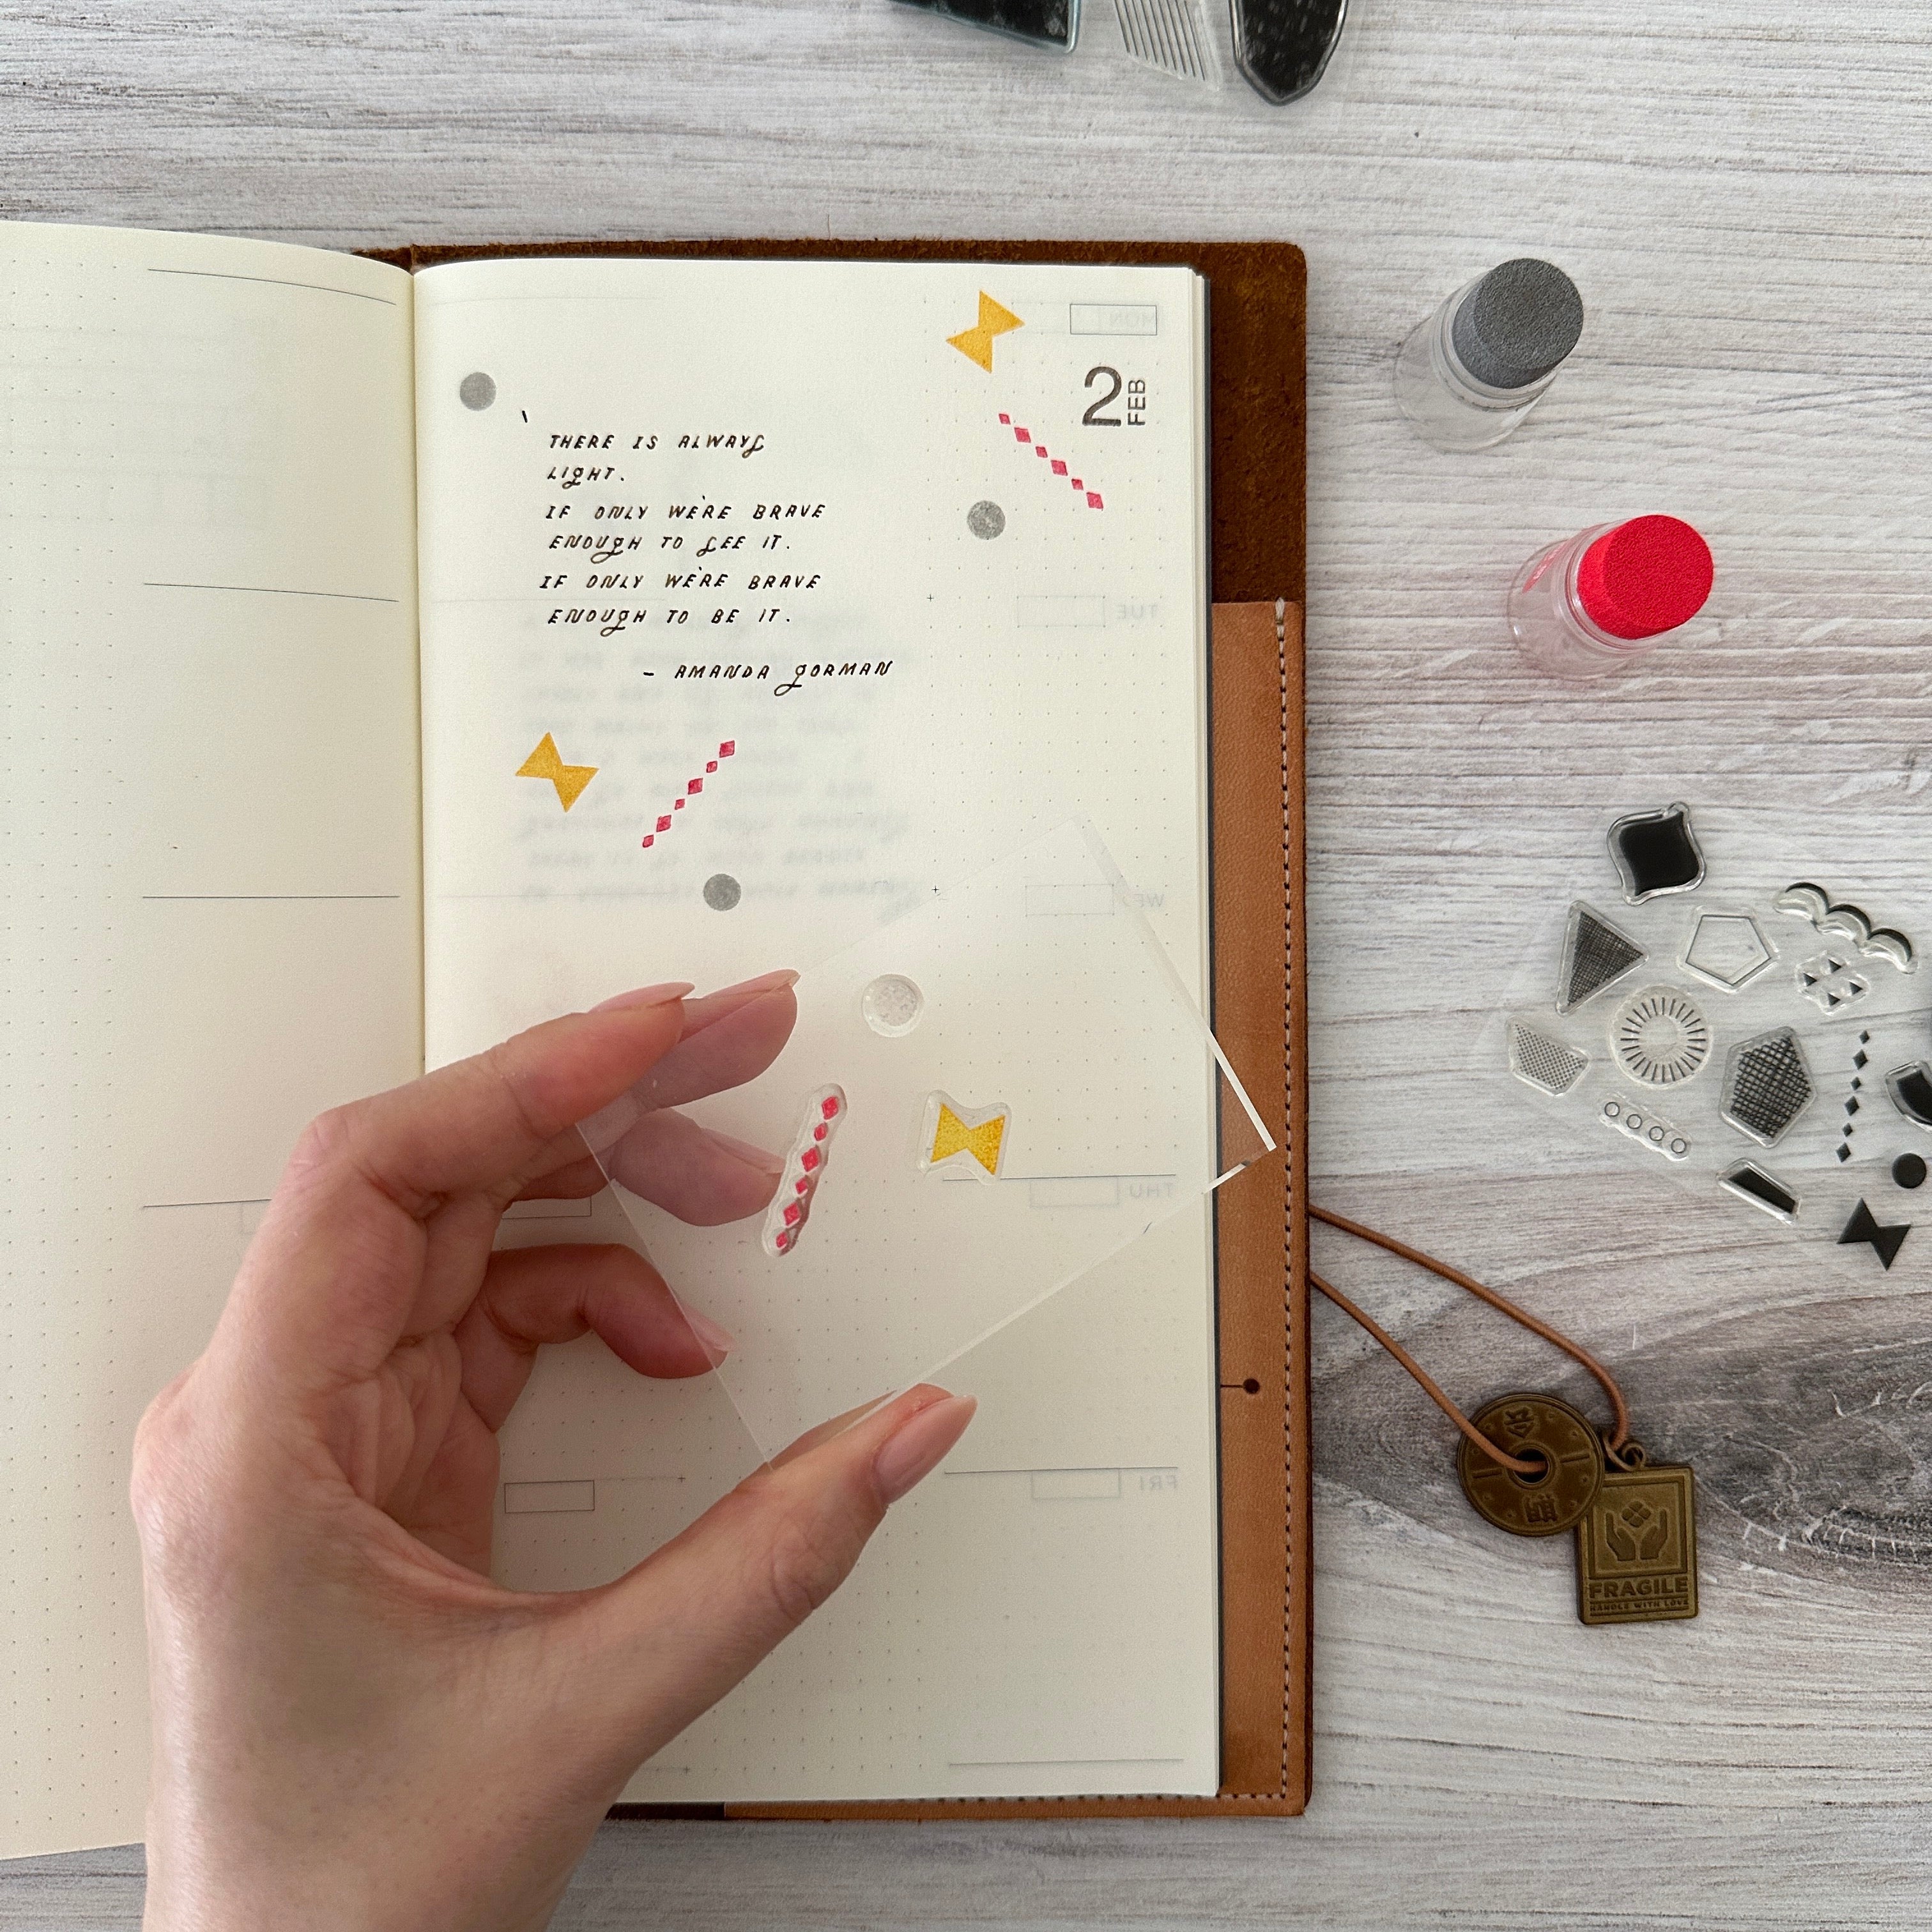 MON
2 FEB
THERE IS ALWAYS
LIGHT.
IF ONLY WE'RE BRAVE
ENOUGH TO SEE IT.
IF ONLY WE'RE BRAVE
ENOUGH TO BE IT.
- AMANDA GORMAN
TUE
WED
THU
FRI
FRAGILE
HANDLE WITH LOVE